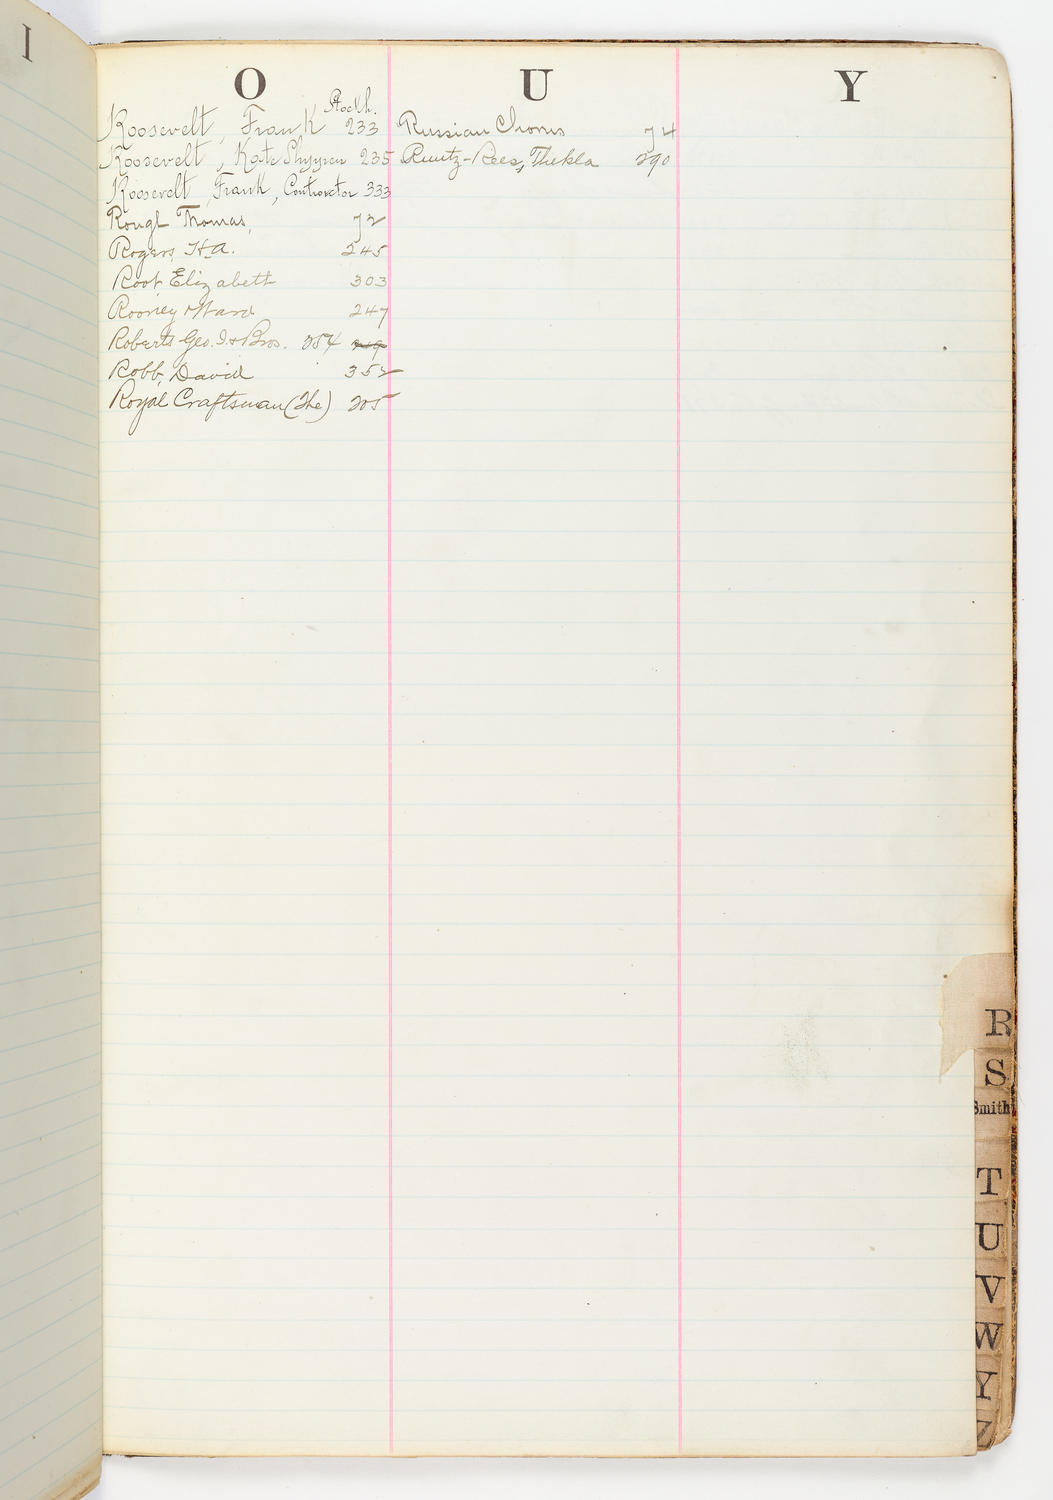 I
O U Y
Stockh.
Roosevelt, Frank 233
Roosevelt, Kate Shippen 235
Roosevelt, Frank, Contractor 333
Rough Thomas, 72
Rogers, H.A. 245
Root Elizabeth 303
Rooney Ward 247
Roberts Geo. I. & Bros. 254
Robb, David 352
Royal Craftsman (The) 205
Russian Chorus 74
Ruutz-Rees, Thekla 290
R
S
Smith
T
U
V
W
Y
Z